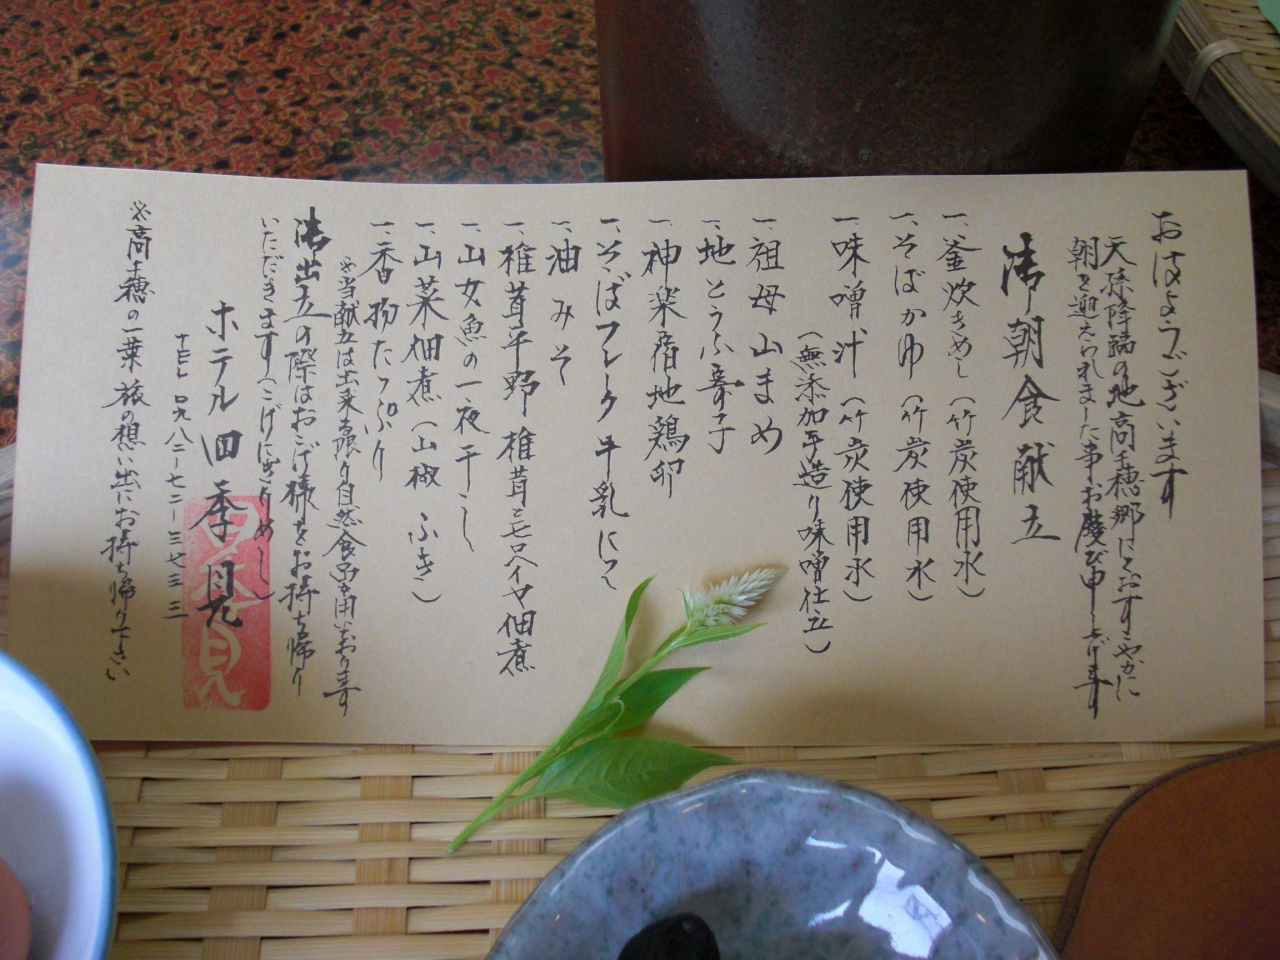 おはようございます
天孫降臨の地高千穂郷にておすこやかに
朝を迎えられました事お慶び申し上げます
御朝食献立
一、釜炊きめし（竹炭使用水）
一、そばかゆ（竹炭使用水）
一、味噌汁（竹炭使用水）
（無添加手造り味噌仕立）
一、祖母山まめ
一、地とうふ
一、神楽宿地鶏卵
一、そばフレーク牛乳にて
一、油みそ
一、椎茸平野 椎茸とモロヘイヤ佃煮
一、山女魚の一夜干し
一、山菜佃煮（山椒 ふき）
一、香物たっぷり
※当献立は出来る限り自然食品を用いております
御出立の際はおこげ様をお持ち帰り
いただきます（こげにぎりめし）
ホテル四季見
TEL 〇九八二－七二－三七三三
※高千穂の一葉 旅の想い出にお持ち帰り下さい
四季見